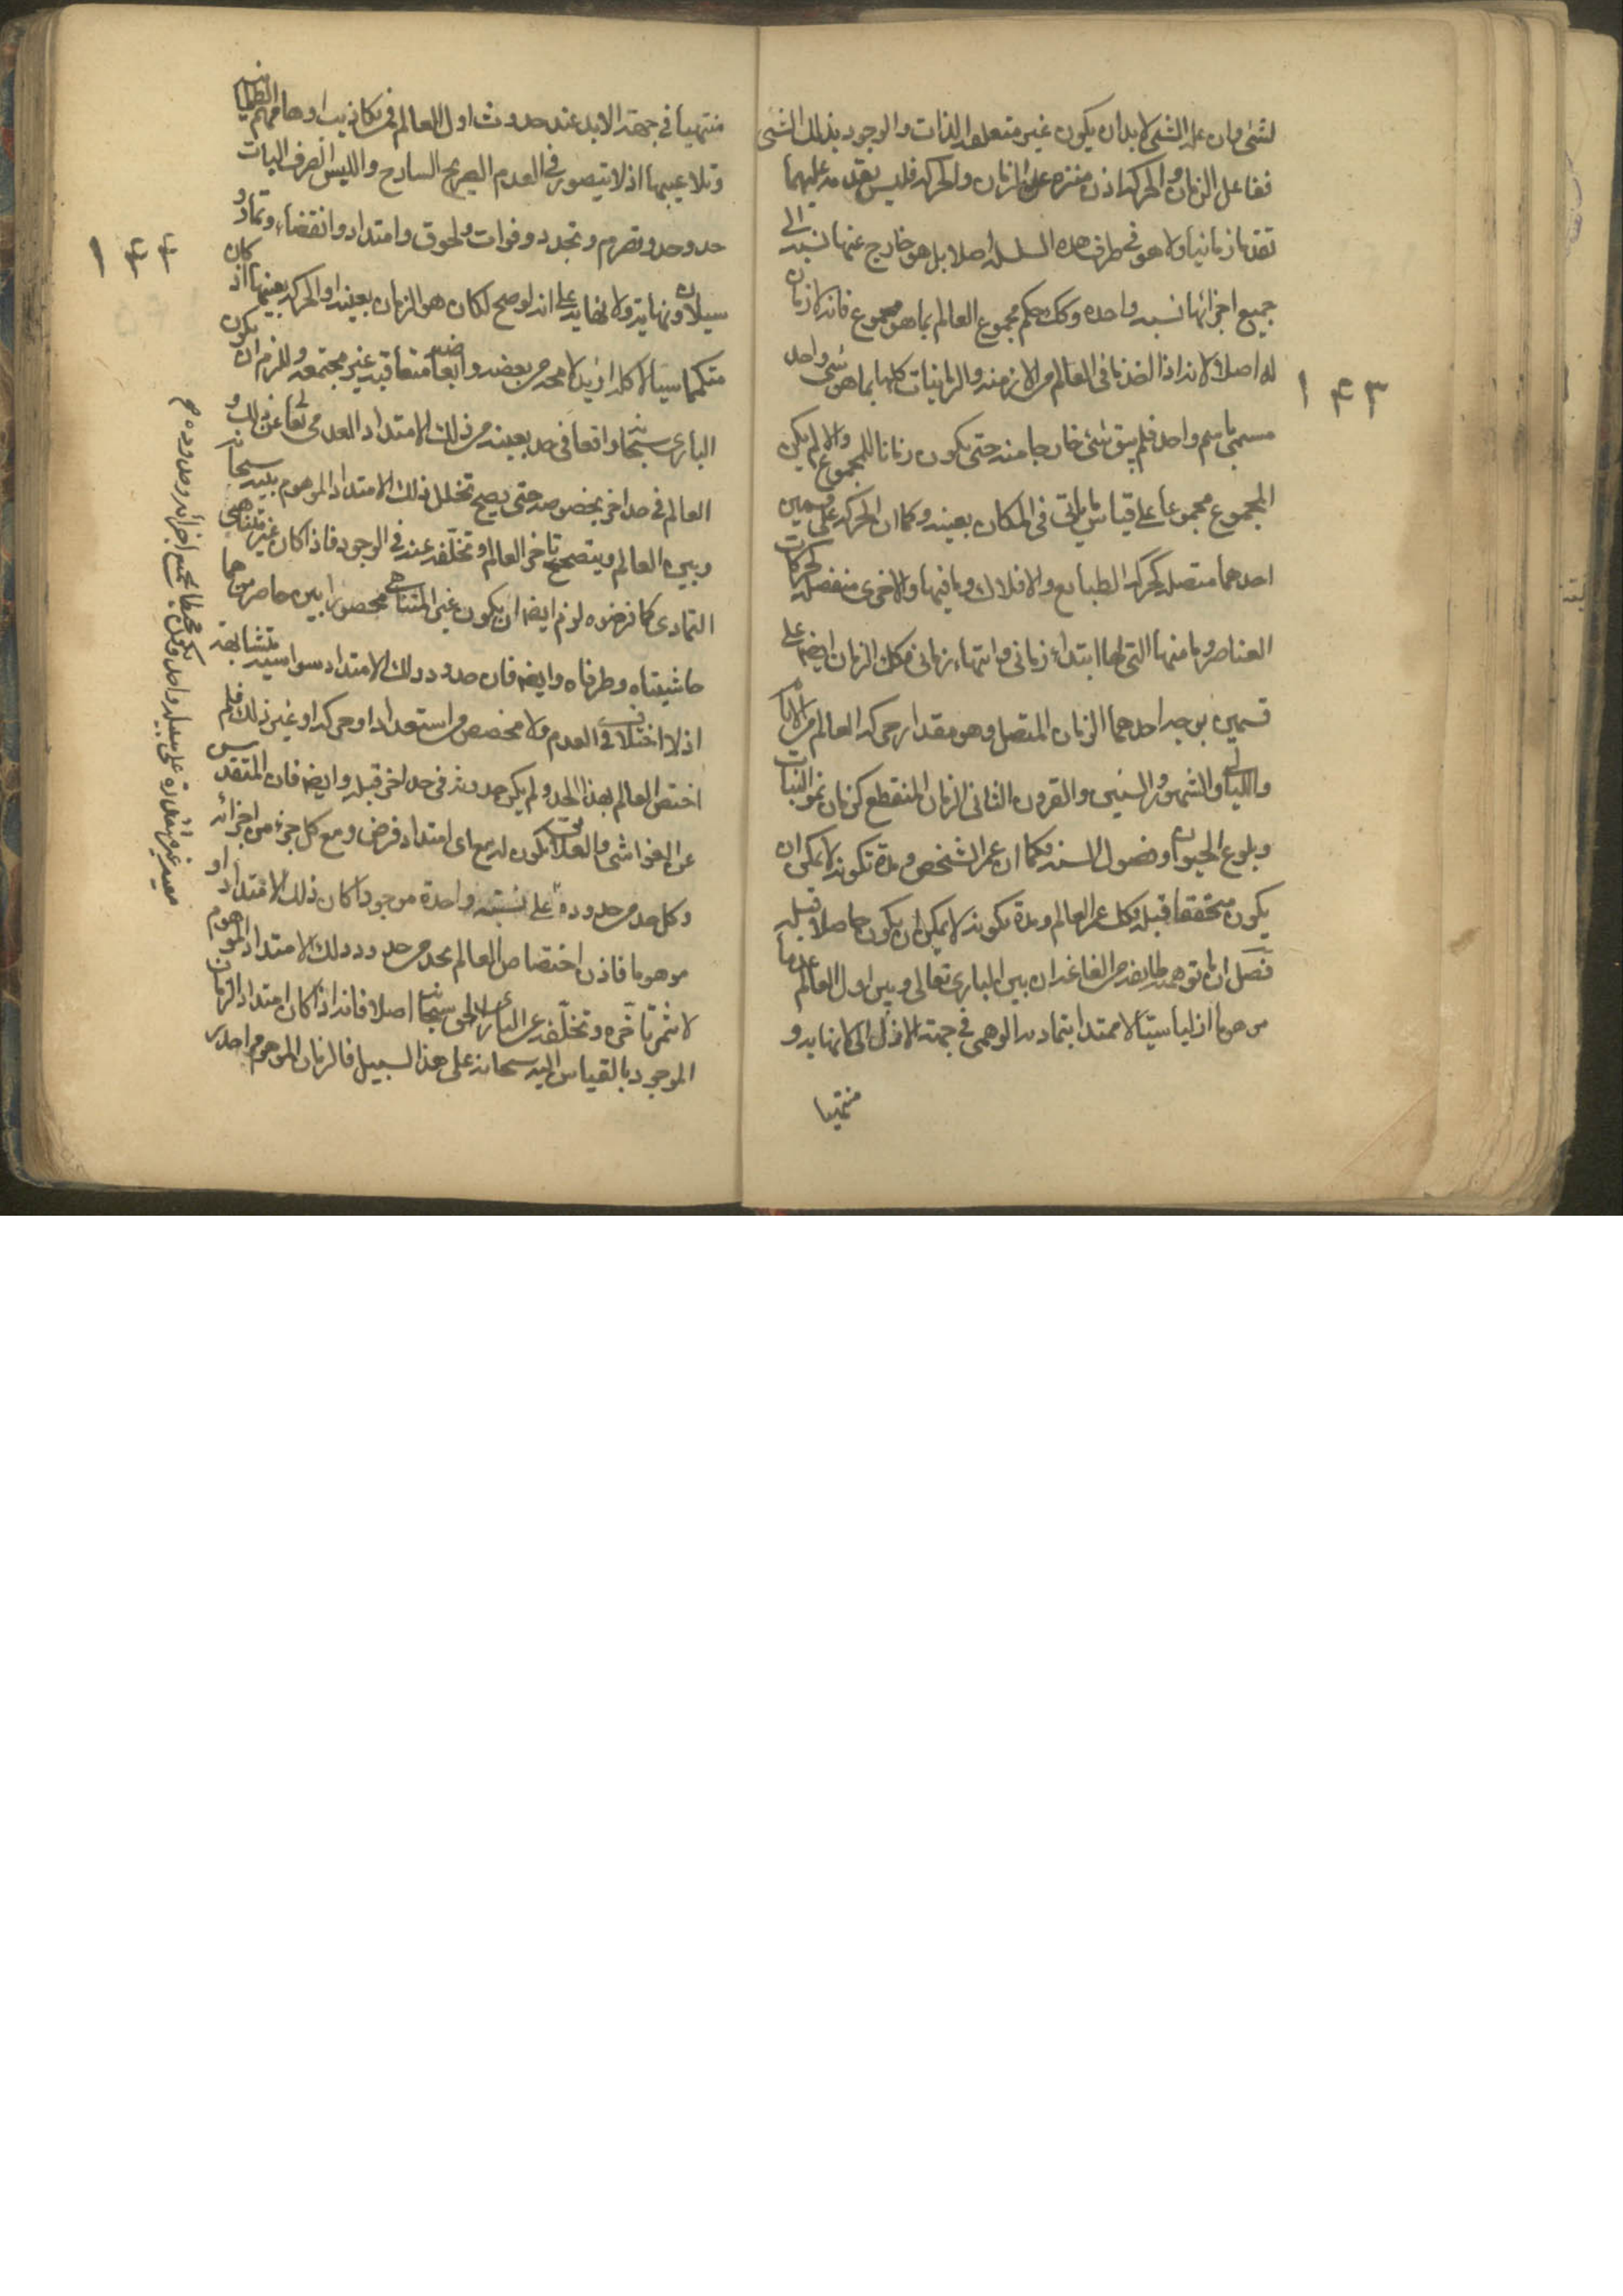 لشئ وان علة الشئ لابد ان يكون غير متعلقة الذات والوجود بذلك الشئ
ففاعل الزمان والحركة اذن متنزه عن الزمان والحركة فليس تقدمه عليهما
تقدما زمانيا ولا هو فى طرف هذه السلسلة اصلا بل هو خارج عنها نسبته الى
جميع اجزائها نسبة واحدة وكك حكم مجموع العالم بما هو مجموع فانه لا زمان
له اصلا لانه اذا اخذ ما فى العالم من الازمنة والزمانيات كلها بما هو شئ واحد
مسمى باسم واحد فلم يبق شئ خارجا منه حتى يكون زمانا للمجموع والا لم يكن
المجموع مجموعا على قياس ما يأتى فى المكان بعينه وكما ان الحركة على قسمين
احدهما متصلة كحركة الطبايع والافلاك وما فيها والاخرى منفصلة كحركات
العناصر وما منها التى لها ابتداء زمانى وانتهاء زمانى فكك الزمان ايضا على
قسمين بوجه احدهما الزمان المتصل وهو مقدار حركة العالم من الايام
والليالى والشهور والسنين والقرون الثانى الزمان المنقطع كزمان نمو النبات
وبلوغ الحيوان وفصول السنة وكما ان عمر الشخص ومدة تكونه لا يمكن ان
يكون متحققا قبله فكك عمر العالم ومدة تكونه لا يمكن ان يكون حاصلا قبله
فصل ان ما توهمه طايفة من الفاغة ان بين البارى تعالى وبين اول العالم عدما
موهوما ازليا سيالا ممتدا بتماديه الوهمى فى جهة الازل الى لا نهاية و
منتهيا
١٤٣
منتهيا فى جهة الابد عند حدوث اول العالم فمن تكاذيب اوهامهم الظلمانية
وتلاعيبها اذ لا يتصور فى العدم الصريح الساذج والليس الصرف البات
حد وحد وتصرم وتجدد وفوات ولحوق وامتداد وانقضاء وتماد و
سيلان ونهاية ولا نهاية على انه لو صح لكان هو الزمان بعينه او الحركة بعينها اذ كان
متكمما سيالا كله ازيد لا محة من بعضه وابعاضه متعاقبة غير مجتمعة وللزم ان يكون
البارى سبحانه واقعا فى حد بعينه من ذلك الامتداد العدمى تعالى عن ذلك و
العالم فى حد اخر بخصوصه حتى يصح تخلل ذلك الامتداد الموهوم بينه سبحانه
وبين العالم ويتصحح تاخر العالم وتخلفه عنه فى الوجود فاذا كان غير متناهى
التمادى كما فرضوه لزم ايضا ان يكون غير المتناهى محصورا بين حاصرين هما
حاشيتاه وطرفاه وايضا فان حدود ذلك الامتداد سواسية متشابهة
اذ لا اختلاف فى العدم ولا مخصص من استعداد او حركة او غير ذلك فلم
اختص العالم بهذا الحد ولم يكن حدوثه فى حد اخر قبله وايضا فان المتقدس
عن الغواشى والعلايق يكون له مع اى امتداد فرض ومع كل جزء من اجزائه
وكل حد من حدوده على نسبة واحدة موجودا كان ذلك الامتداد او
موهوما فاذن اختصاص العالم بحد من حدود ذلك الامتداد الموهوم
لا يثمر تاخره وتخلفه عن البارئ الحق سبحانه اصلا فانه اذا كان امتداد الزمان
الموجود بالقياس اليه سبحانه على هذا السبيل فالزمان الموهوم اجدر
١٤٤